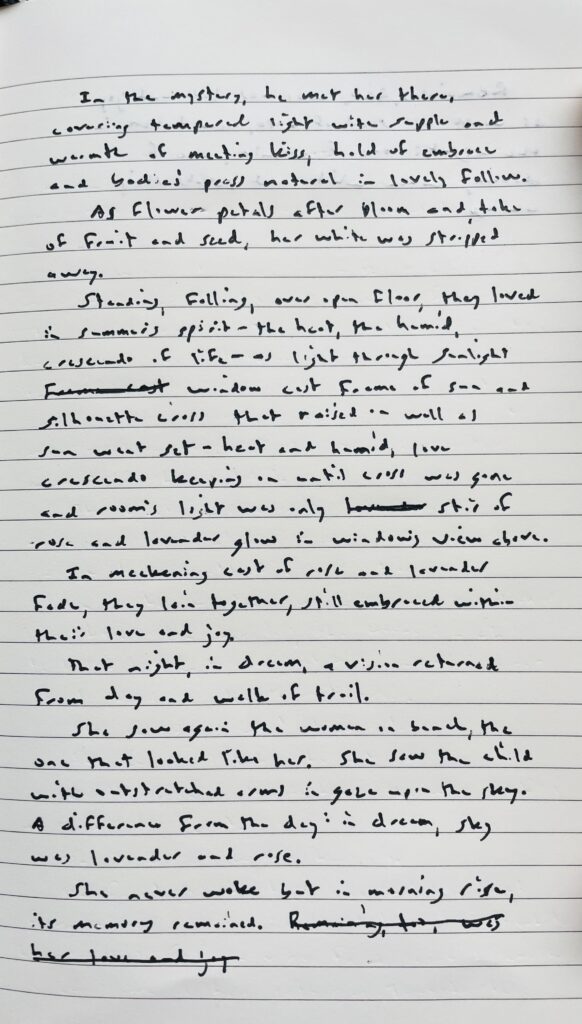 In the mystery, he met her there,
covering tempered light with supple and
warmth of meeting kiss, hold of embrace
and bodies' press natural in lovely follow.
As flower petals after bloom and take
of fruit and seed, her white was stripped
away.
Standing, falling, over open floor, they loved
in summer's spirit - the heat, the humid,
crescendo of life - as light through sunlight
window cast frame of sun and
silhouette cross that raised on wall as
sun went set - heat and humid, love
crescendo keeping on until cross was gone
and room's light was only stir of
rose and lavender glow in window's view above.
In meekening cast of rose and lavender
fade, they lain together, still embraced within
their love and joy.
That night, in dream, a vision returned
from day and walk of trail.
She saw again the woman on bench, the
one that looked like her. She saw the child
with outstretched arms in gaze upon the sky.
A difference from the day: in dream, sky
was lavender and rose.
She never woke but in morning rise,
its memory remained. Remaining, too, was
her love and joy